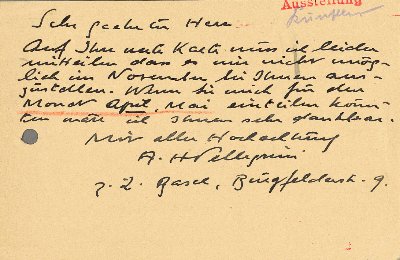 Ausstellung
Künstler
Sehr geehrter Herr
Auf Ihre werte Karte muss ich leider
mitteilen dass es mir nicht mög-
lich im November bei Ihnen aus-
zustellen. Wenn Sie mich für den
Monat April, Mai einteilen könn-
ten wäre ich Ihnen sehr dankbar.
Mit aller Hochachtung
A. H. Pellegrini
z. Z. Basel, Burgfelderstr. 9.